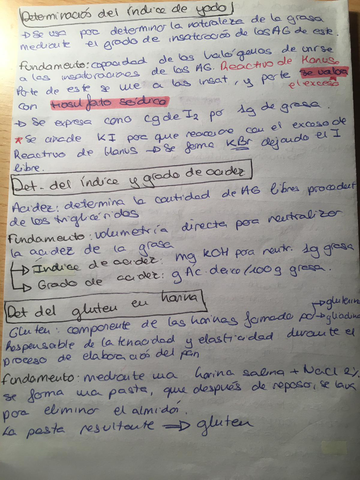 Determinació del índice de yodo
→ Se usa para determinar la naturaleza de la grasa
mediante el grado de insaturación de los AG de este.
Fundamento: capacidad de los halógenos de unirse
a las insaturaciones de los AG Reactivo de Hanus
Parte de este se une a las insat, y parte se valora
con tiosulfato sódico el exceso
→ Se expresa como cg de I2 por 1g de grasa.
* Se añade KI para que reaccione con el exceso de
Reactivo de Hanus → Se forma KBr dejando el I
libre.
Det. del índice y grado de acidez
Acidez: determina la cantidad de AG libres procedente
de los triglicéridos
Fundamento: volumetría directa para neutralizar
la acidez de la grasa
↳ Indice de acidez: mg KOH para neutr. 1g grasa
↳ Grado de acidez: g Ac oleico/100g grasa.
Det del gluten en harina
→ glutenina
Gluten: componente de las harinas formado por → gliadina
Responsable de la tenacidad y elasticidad durante el
proceso de elaboración del pan
Fundamento: mediante una harina salina + NaCl 2%
se forma una pasta, que después de reposo, se lava
para eliminar el almidón.
La pasta resultante ⇒ gluten